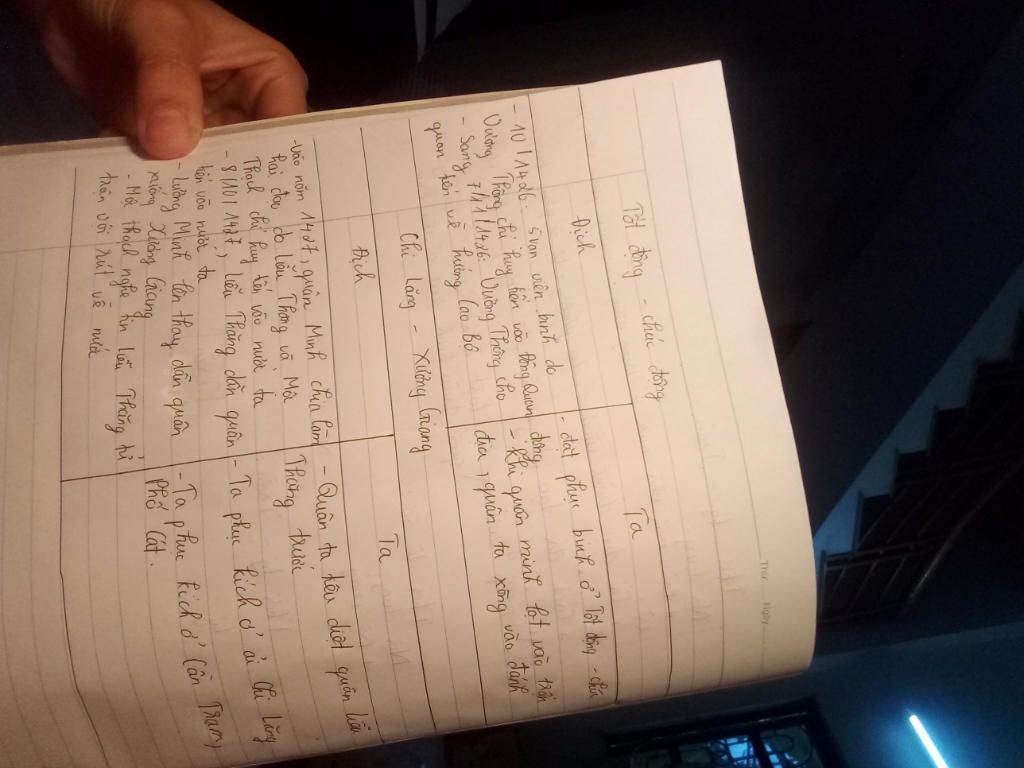 Thứ ngày
Tốt động - chúc động
Địch
Ta
- 10/1426. 5 vạn viện binh do
Vương Thông chỉ huy tiến vào Đông Quan
- Sang 7/11/1426. Vương Thông cho
quan tiến về hướng Cao Bộ
- đặt phục binh ở Tốt động - chúc
động
- khi quân minh lọt vào trận
địa, quân ta xông vào đánh
Chi Lăng - Xương Giang
Địch
Ta
- Vào năm 1427, quân Minh chia làm
hai đạo do Liễu Thăng và Mộc
Thạch chỉ huy tiến vào nước ta
- 8/10/1427, Liễu Thăng dẫn quân
tiến vào nước ta
- Lương Minh lên thay dẫn quân
xuống Xương Giang
- Mộc Thạch nghe tin Liễu Thăng tử
trận vội rút về nước
- Quân ta tiêu diệt quân Liễu
Thăng trước
- Ta phục kích ở ải Chi Lăng
- Ta phục kích ở Cần Trạm,
Phố Cát.